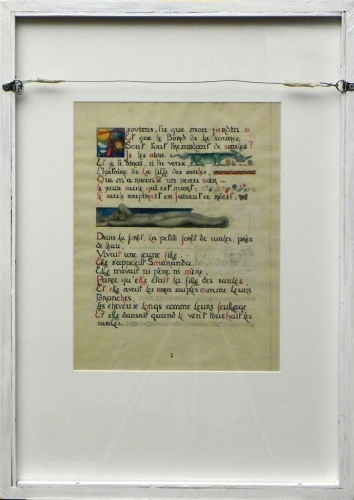 Souviens-tu que mon jardin
Et que le bord de la source
Sont tout de saules ?
Je les aime
Et je te dirai, si tu veux
L'histoire de la fille des saules,
Qui m'a raconté un soir
Le vieux saule qui est mort,
Le saule soupirait en faisant ce récit.
Dans la forêt, la petite forêt de saules, près
de l'eau,
Vivait une jeune fille.
Elle s'appelait Smaranda.
Elle n'avait ni père ni mère,
Parce qu'elle était la fille des saules,
Et elle avait les bras souples comme leurs
Branches,
Les cheveux longs comme leurs feuillage
Et elle dansait quand le vent touchait les
saules.
1